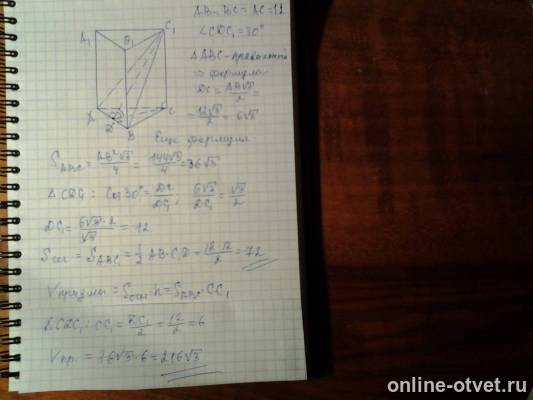 AB = BC = AC = 12
∠CDC₁ = 30°
A₁ B₁ C₁
△ABC – правильный
⇒ формула
DC = AB√3/2 =
= 12√3/2 = 6√3
A D C
B
Еще формула
S_ABC = AB²√3/4 = 144√3/4 = 36√3
△CDC₁: cos 30° = DC/DC₁; 6√3/DC₁ = √3/2
DC₁ = 6√3·2/√3 = 12
Sсеч = S_ABC₁ = 1/2 AB·C₁D = 12·12/2 = 72
Vпризмы = Sосн·h = S_ABC·CC₁
△CDC₁: CC₁ = DC₁/2 = 12/2 = 6
Vпр. = 36√3·6 = 216√3
online-otvet.ru